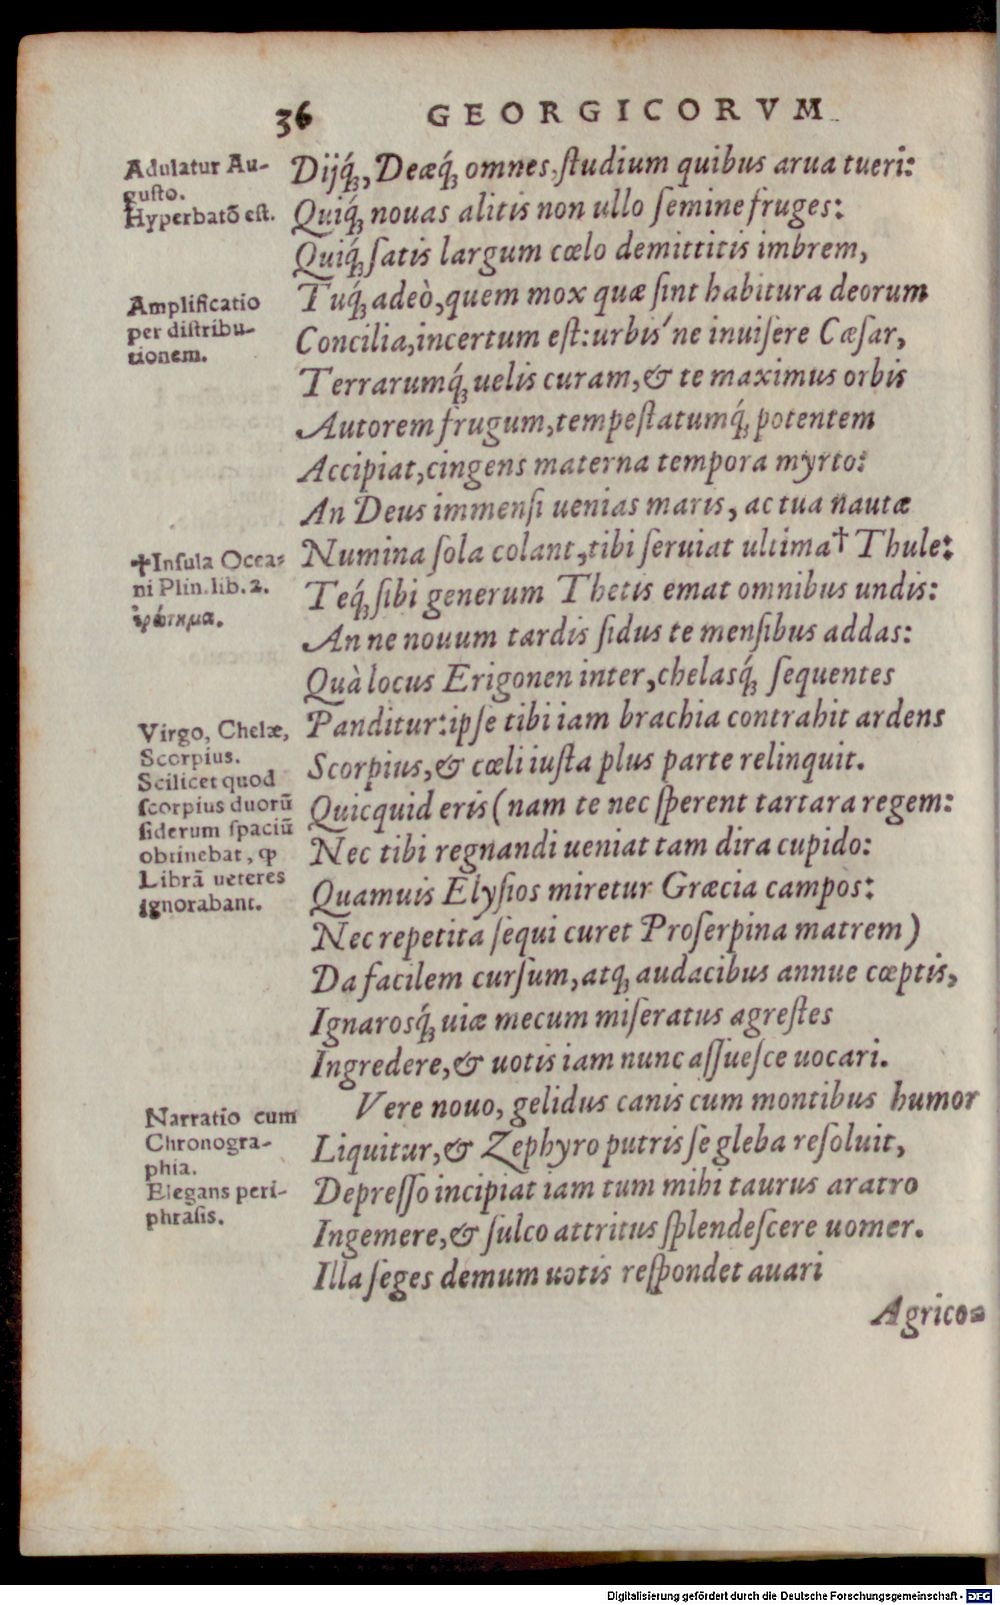 36 GEORGICORVM
Adulatur Au-
gusto.
Hyperbatõ est.
Dijq́;, Deæq́; omnes, ſtudium quibus arua tueri:
Quiq́; nouas alitis non ullo ſemine fruges:
Quiq́; ſatis largum cœlo demittitis imbrem,
Amplificatio
per diſtribu-
tionem.
Tuq́; adeò, quem mox quæ ſint habitura deorum
Concilia, incertum eſt: urbis' ne inuiſere Cæſar,
Terrarumq́; uelis curam, & te maximus orbis
Autorem frugum, tempeſtatumq́; potentem
Accipiat, cingens materna tempora myrto:
An Deus immenſi uenias maris, ac tua nautæ
✝Inſula Ocea-
ni Plin. lib. 2.
ἐρώτημα.
Numina ſola colant, tibi ſeruiat ultima† Thule:
Teq́; ſibi generum Thetis emat omnibus undis:
An ne nouum tardis ſidus te menſibus addas:
Quà locus Erigonen inter, chelasq́; ſequentes
Virgo, Chelæ,
Scorpius.
Scilicet quod
ſcorpius duorũ
ſiderum ſpaciũ
obtinebat, ꝙ
Librã ueteres
ignorabant.
Panditur: ipſe tibi iam brachia contrahit ardens
Scorpius, & cœli iuſta plus parte relinquit.
Quicquid eris (nam te nec ſperent tartara regem:
Nec tibi regnandi ueniat tam dira cupido:
Quamuis Elyſios miretur Græcia campos:
Nec repetita ſequi curet Proſerpina matrem)
Da facilem curſum, atq; audacibus annue cœptis,
Ignarosq́; uiæ mecum miſeratus agreſtes
Ingredere, & uotis iam nunc aſſueſce uocari.
Narratio cum
Chronogra-
phia.
Elegans peri-
phraſis.
Vere nouo, gelidus canis cum montibus humor
Liquitur, & Zephyro putris ſe gleba reſoluit,
Depreſſo incipiat iam tum mihi taurus aratro
Ingemere, & ſulco attritus ſplendeſcere uomer.
Illa ſeges demum uotis reſpondet auari
Agrico-
Digitalisierung gefördert durch die Deutsche Forschungsgemeinschaft - DFG